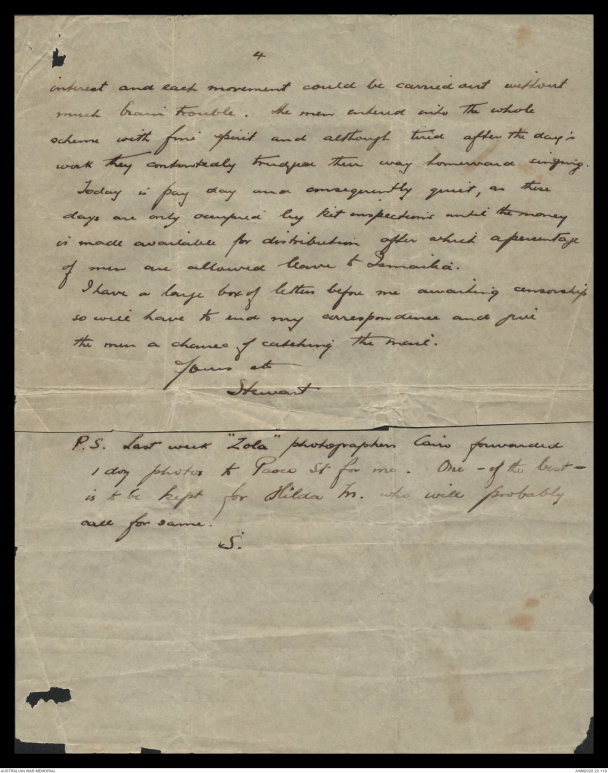 4
interest and each movement could be carried out without
much brain trouble. The men entered into the whole
scheme with fine spirit and although tired after the day's
work they contentedly trudged their way homeward singing.
Today is pay day and consequently quiet, as these
days are only occupied by kit inspections until the money
is made available for distribution after which a percentage
of men are allowed leave to Ismailia.
I have a large box of letters before me awaiting censorship
so will have to end my correspondence and give
the men a chance of catching the mail.
Yours etc
Stewart
P.S. Last week "Zola" photographers Cairo forwarded
1 doz photos to Pasco St for me. One - of the best -
is to be kept for Hilda M. who will probably
call for same.
S.
AUSTRALIAN WAR MEMORIAL